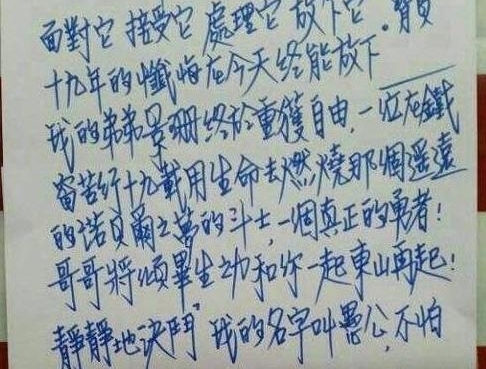 面對它 接受它 處理它 放下它。背負
十九年的懺悔在今天終能放下
我的弟弟景珊終於重獲自由，一位在鐵
窗苦行十九載用生命去燃燒那個遥遠
的诺貝爾之夢的斗士，一個真正的勇者！
哥哥將傾畢生功和你一起東山再起！
靜靜地决鬥 我的名字叫愚公，不怕